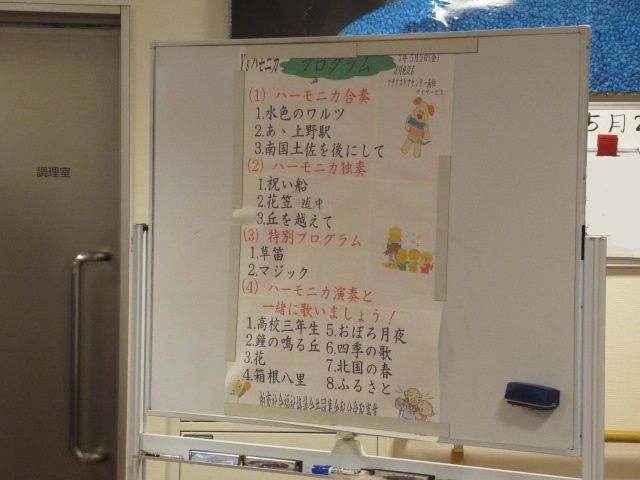 調理室
Y'sハモニカ プログラム
(1) ハーモニカ合奏
1.水色のワルツ
2.あゝ上野駅
3.南国土佐を後にして
(2) ハーモニカ独奏
1.祝い船
2.花笠道中
3.丘を越えて
(3) 特別プログラム
1.草笛
2.マジック
(4) ハーモニカ演奏と
一緒に歌いましょう!
1.高校三年生 5.おぼろ月夜
2.鐘の鳴る丘 6.四季の歌
3.花 7.北国の春
4.箱根八里 8.ふるさと
5月2